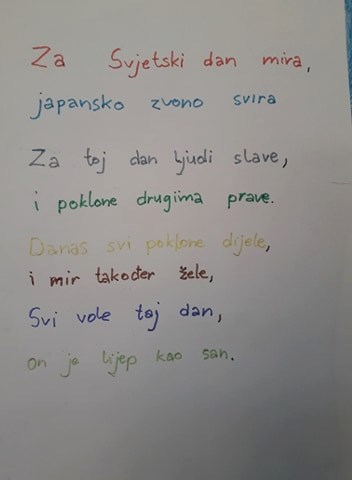 Za Svjetski dan mira,
japansko zvono svira
Za toj dan ljudi slave,
i poklone drugima prave.
Danas svi poklone dijele,
i mir također žele,
Svi vole toj dan,
on je lijep kao san.